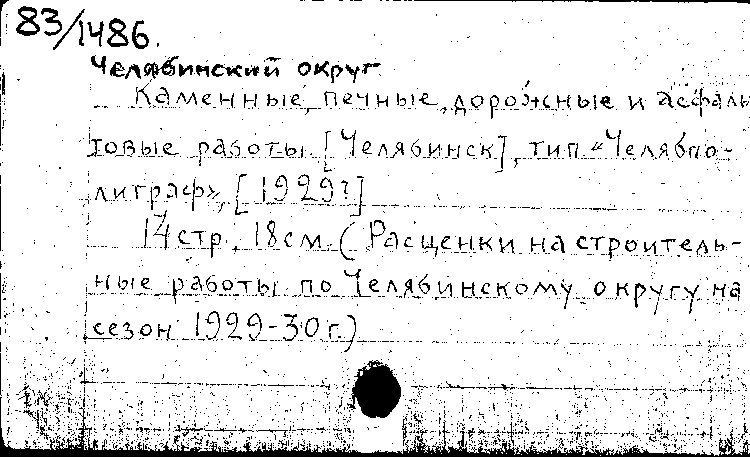 83/1486.
Челябинский округ.
Каменные, печные, дорожные и асфаль
товые работы. [Челябинск], тип. «Челябпо-
лиграф», [1929?]
14 стр. 18 см. (Расценки на строитель-
ные работы по Челябинскому округу на
сезон 1929-30 г.)